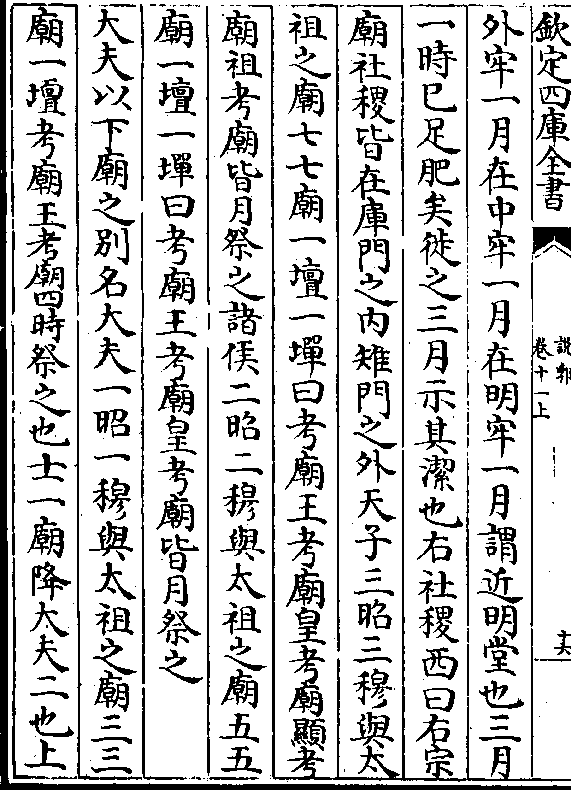 欽定四庫全書
說郛
卷十一上
十六
外牢一月在中牢一月在明牢一月謂近明堂也三月
一時已足肥矣徙之三月示其潔也右社稷西曰右宗
廟社稷皆在庫門之内雉門之外天子三昭三穆與太
祖之廟七七廟一壇一墠曰考廟王考廟皇考廟顯考
廟祖考廟皆月祭之諸侯二昭二穆與太祖之廟五五
廟一壇一墠曰考廟王考廟皇考廟皆月祭之
大夫以下廟之别名大夫一昭一穆與太祖之廟三三
廟一壇考廟王考廟四時祭之也士一廟降大夫二也上